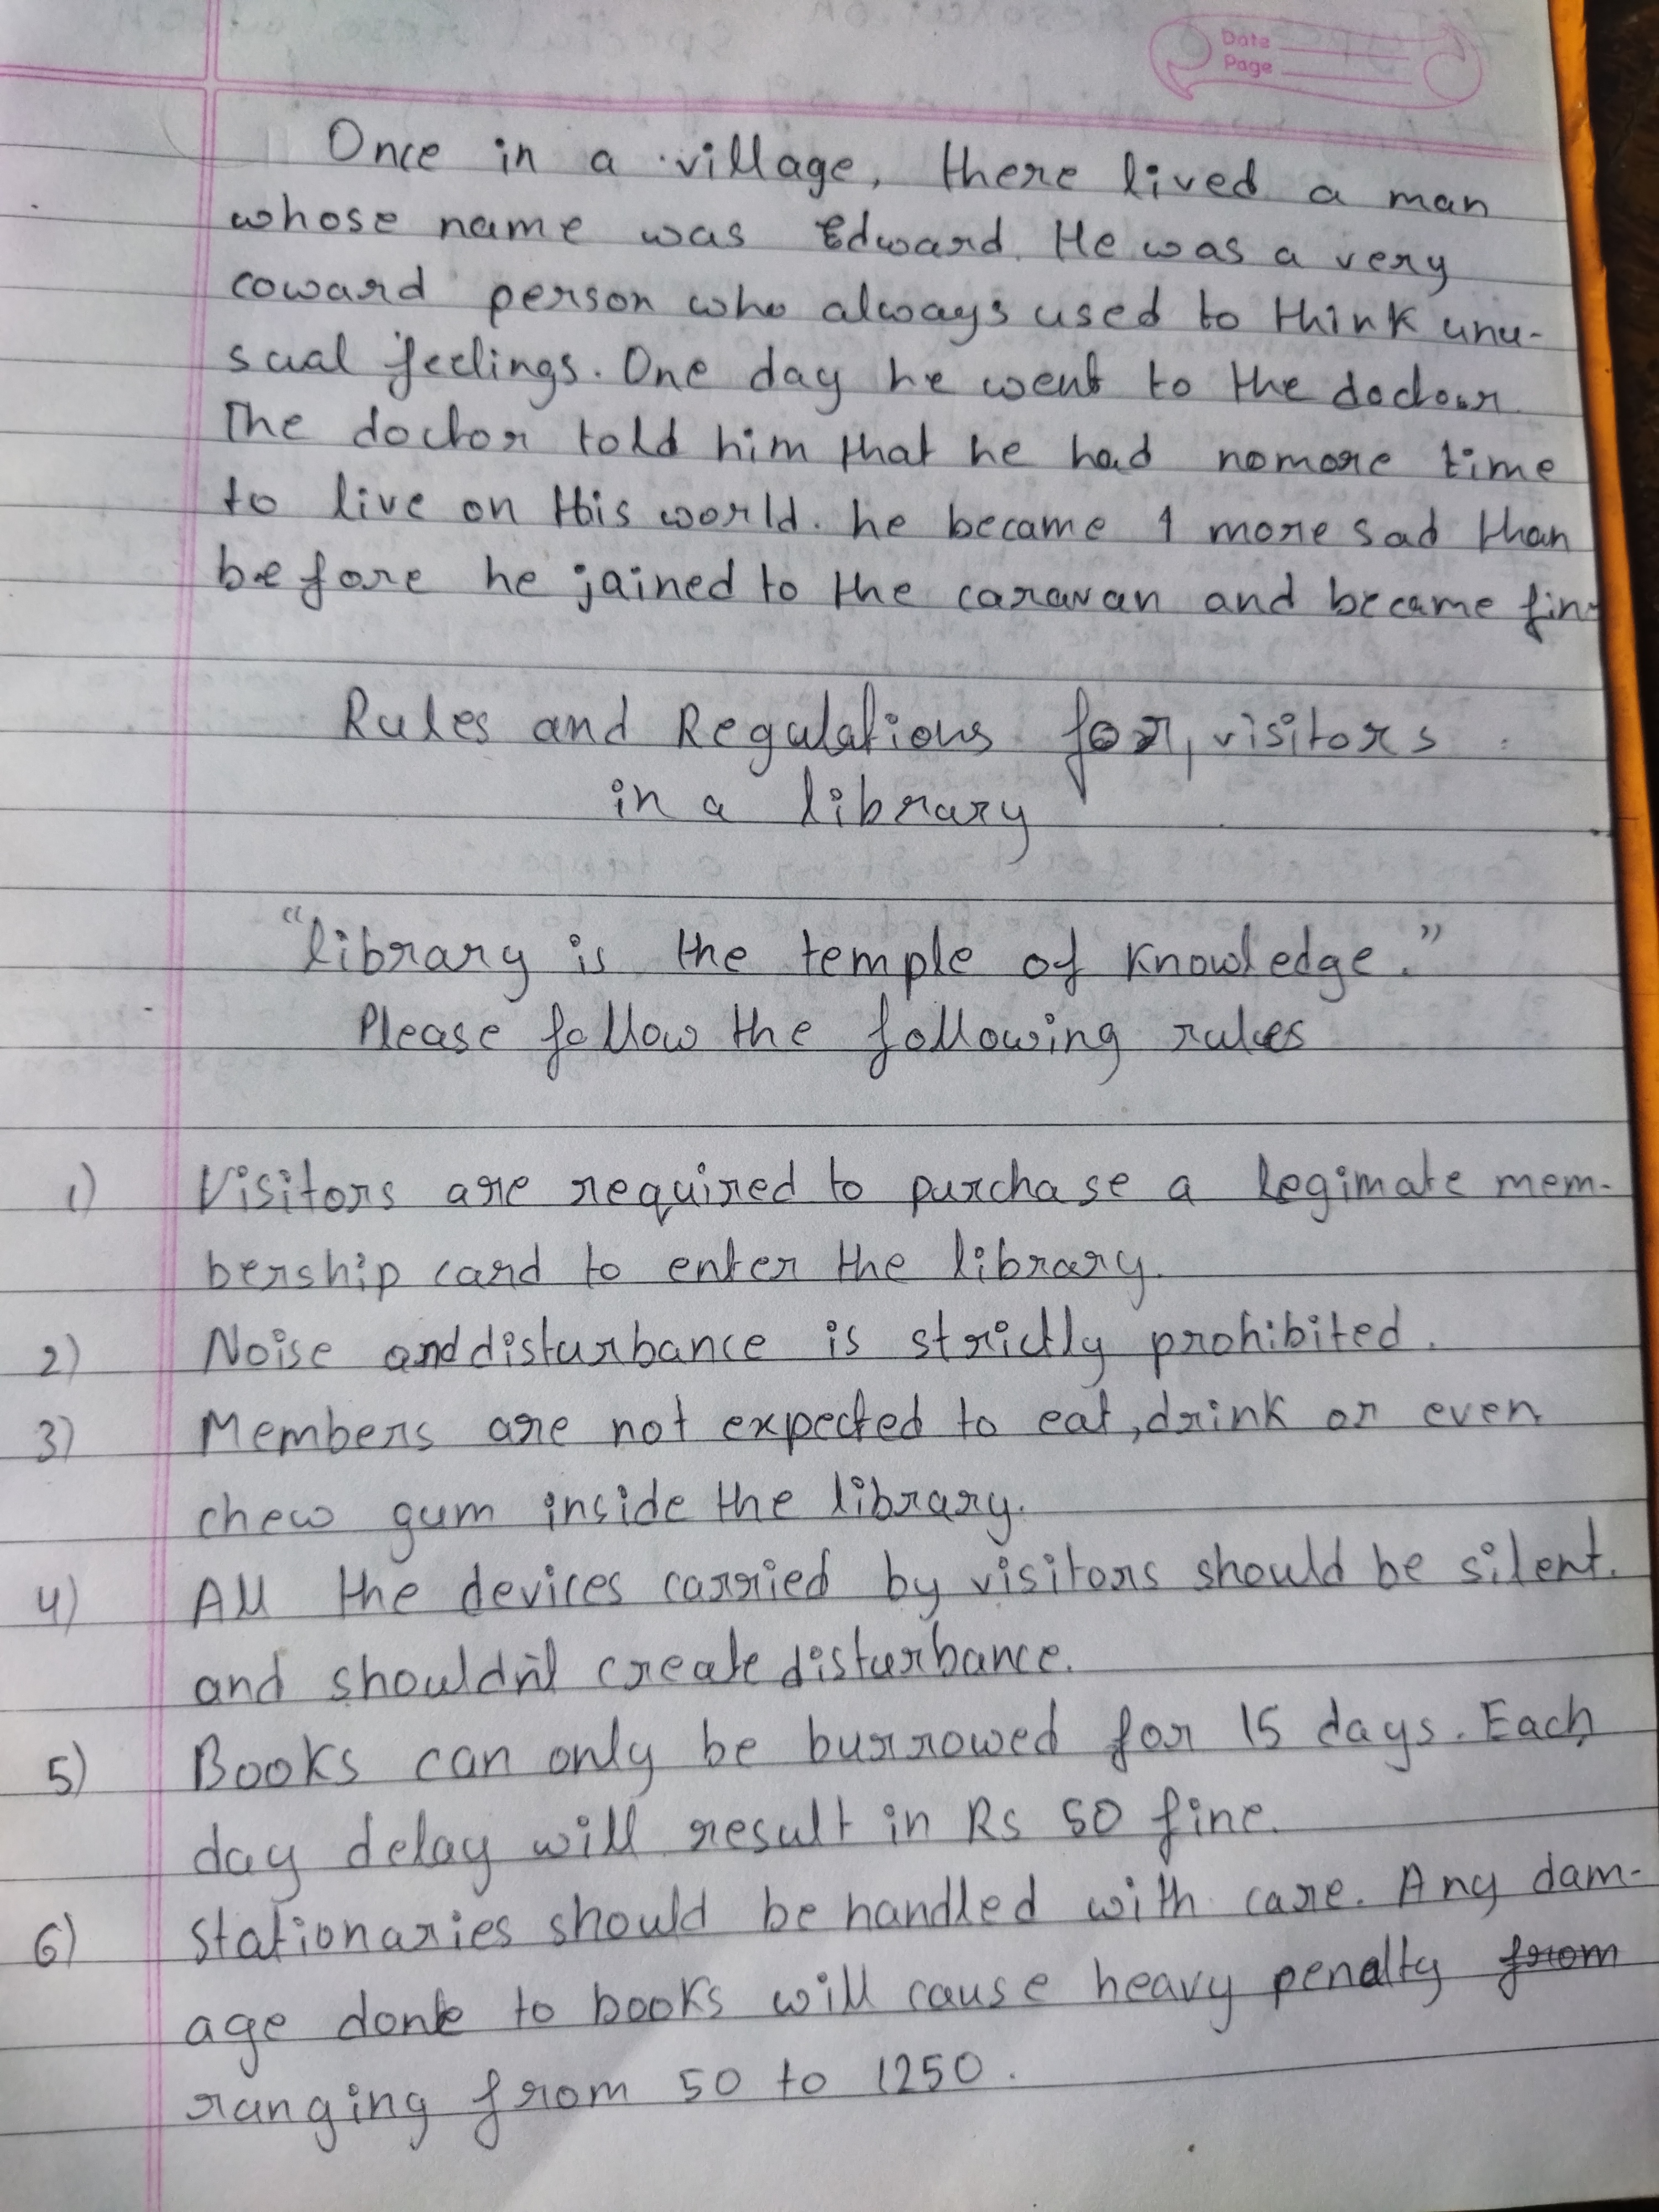 Date
Page
Once in a village, there lived a man
whose name was Edward. He was a very
coward person who always used to think unu-
sual feelings. One day he went to the doctour
The doctor told him that he had nomore time
to live on this world. he became 1 more sad than
before he jained to the caravan and became fine
Rules and Regulations for, visitors
in a library
"library is the temple of knowledge."
Please follow the following rules
1) Visitors are required to purchase a legimate mem-
bership card to enter the library.
2) Noise and disturbance is strictly prohibited.
3) Members are not expected to eat, drink or even
chew gum inside the library.
4) All the devices carried by visitors should be silent.
and shouldn't create disturbance.
5) Books can only be burrowed for 15 days. Each
day delay will result in Rs 50 fine.
6) Stationaries should be handled with care. Any dam-
age done to books will cause heavy penalty from
ranging from 50 to 1250.